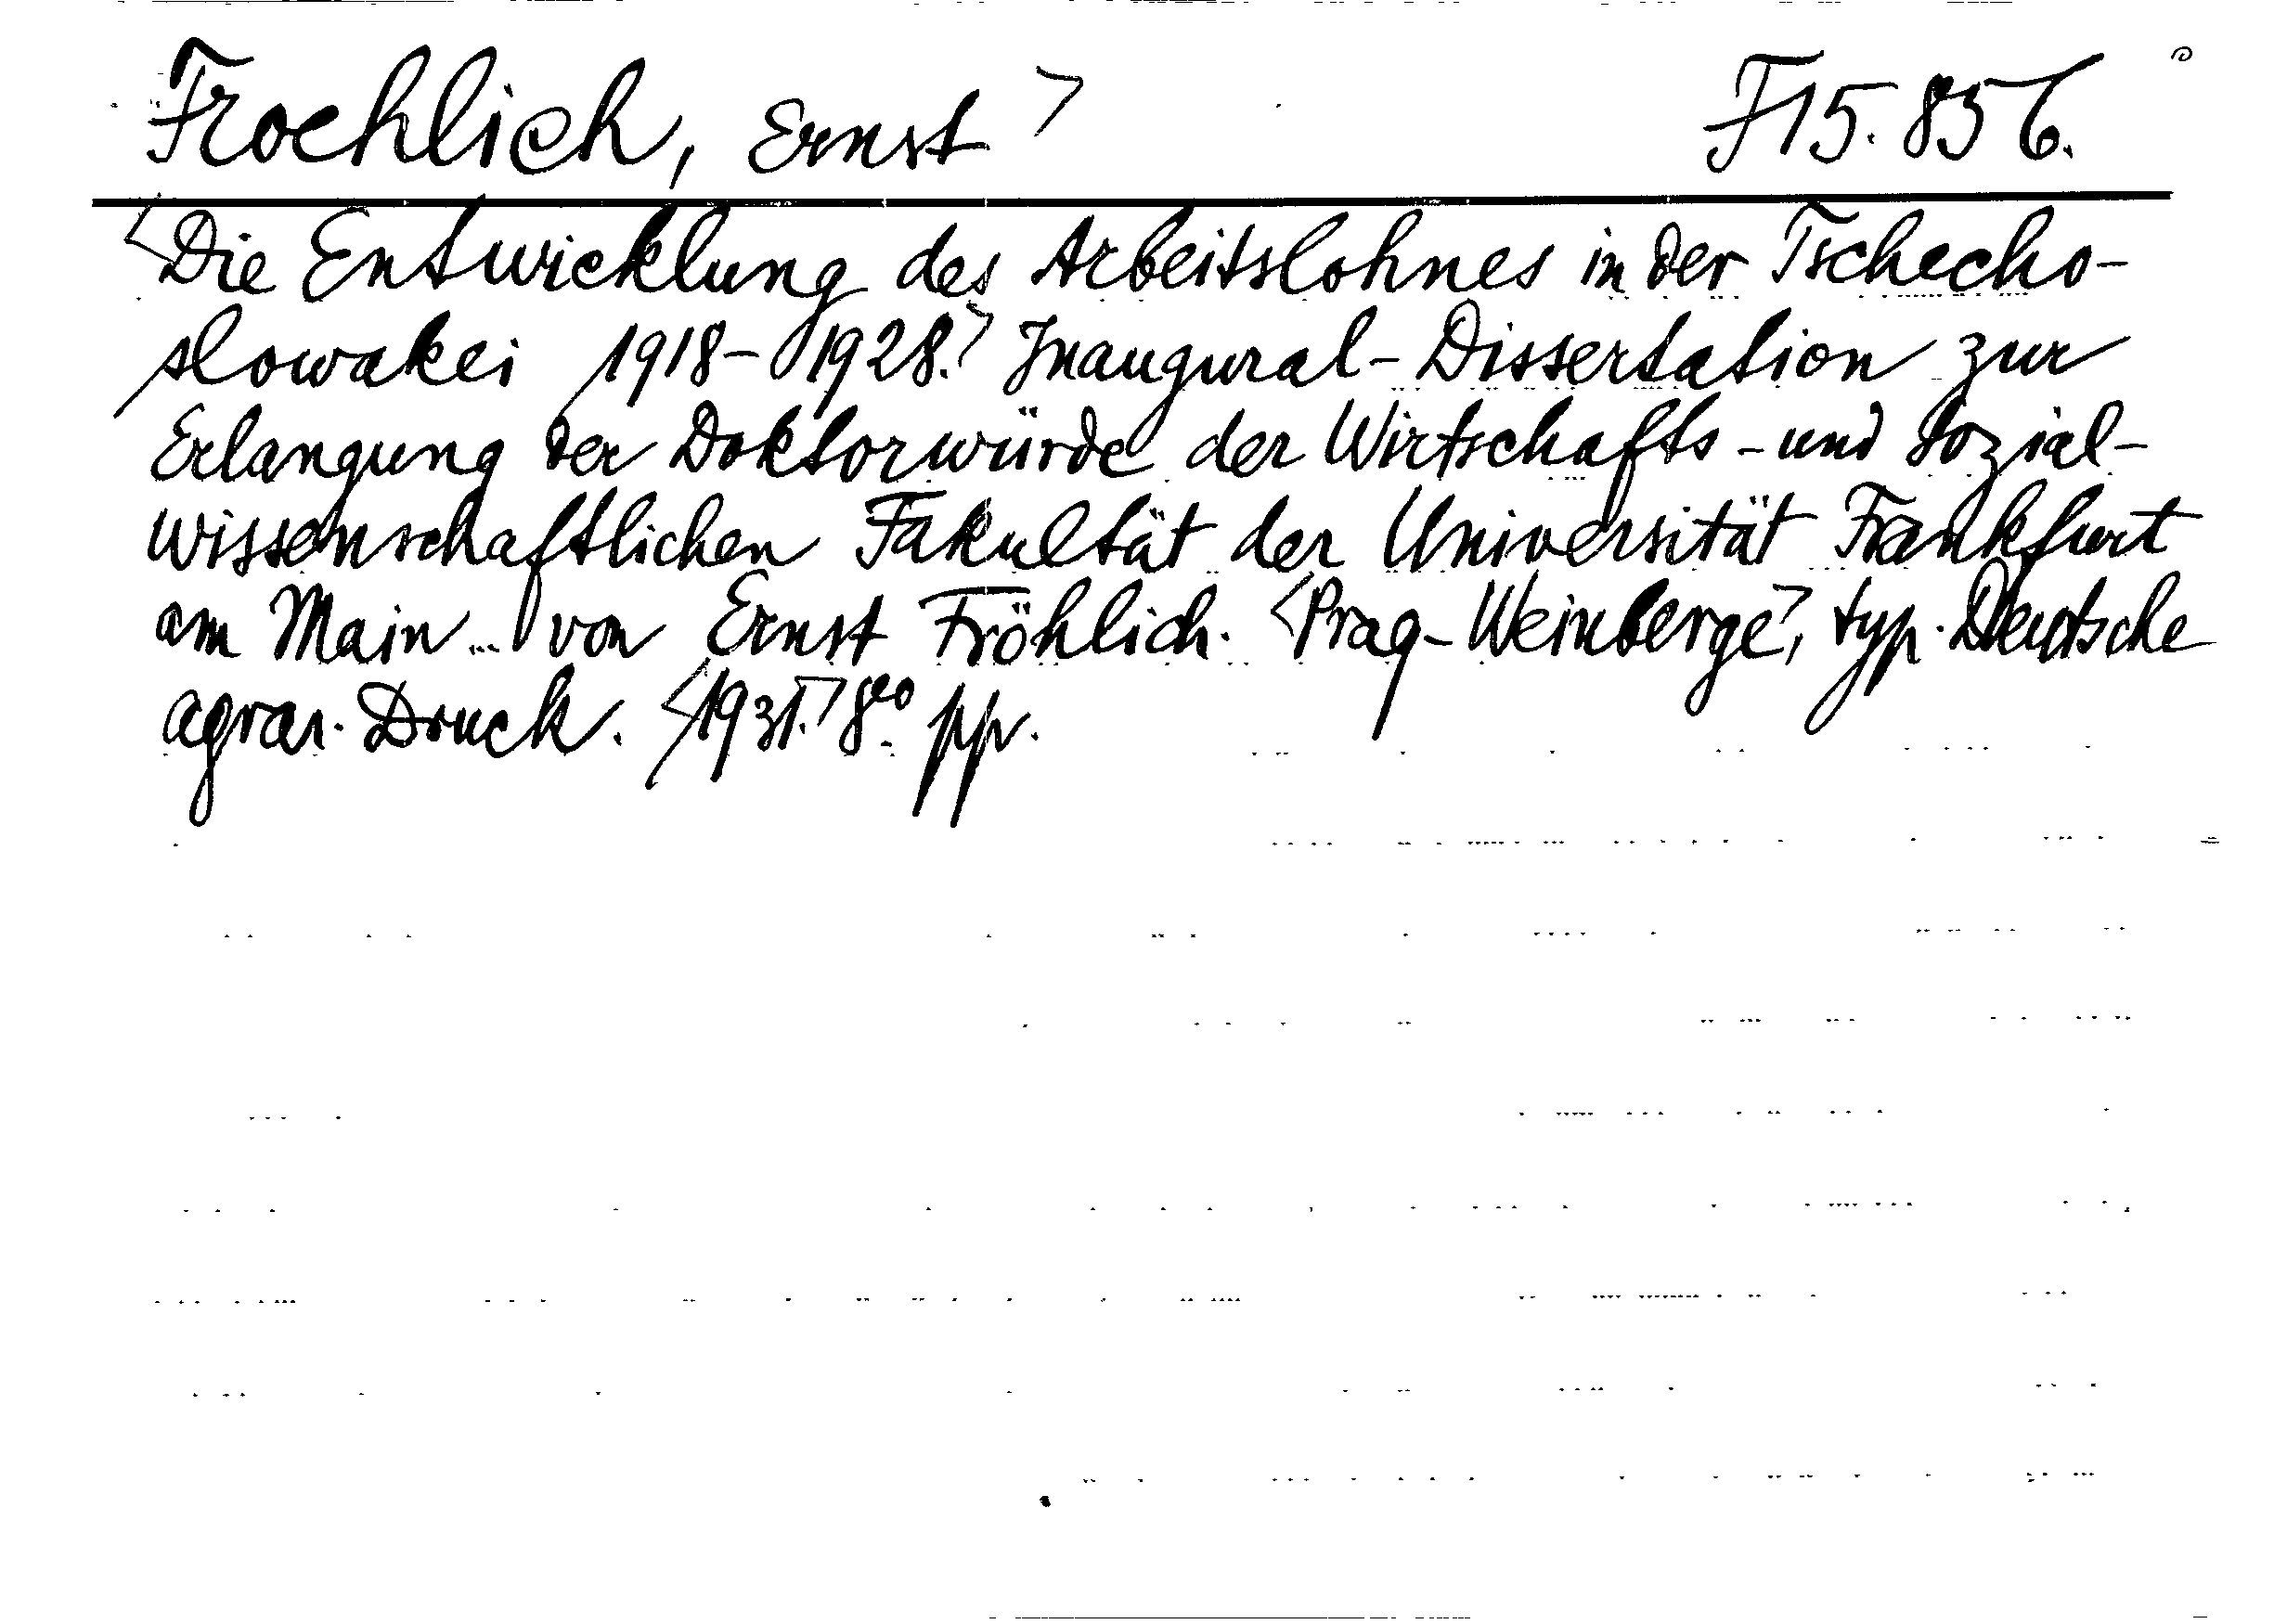 Froehlich, Ernst> F 15.856.
<Die Entwicklung des Arbeitslohnes in der Tschecho-
slowakei 1918-1928.> Inaugural-Dissertation zur
Erlangung der Doktorwürde der Wirtschafts-und Sozial-
wissenschaftlichen Fakultät der Universität Frankfurt
am Main... von Ernst Fröhlich. <Prag-Weinberge>, typ. Deutsche
agrar. Druck. <1931.> 8vo pp.